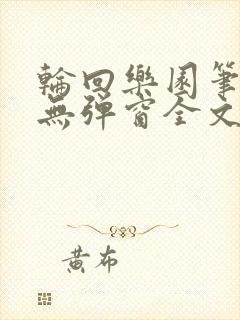 輪回樂園筆
無彈窗全文
黃布